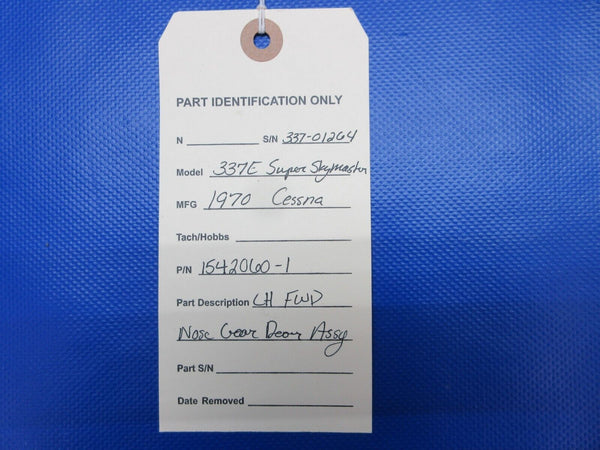 PART IDENTIFICATION ONLY
N S/N 337-01264
Model 337E Super Skymaster
MFG 1970 Cessna
Tach/Hobbs
P/N 1542060-1
Part Description LH FWD
Nose Gear Door Assy
Part S/N
Date Removed